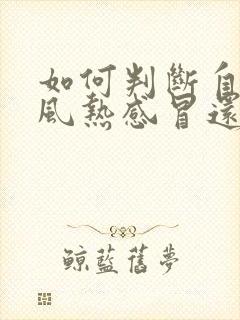 如何判斷自
風熱感冒還
鯨藍舊夢